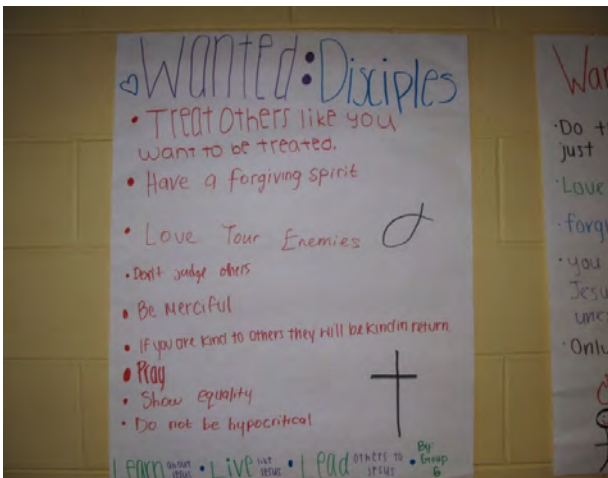 Wanted: Disciples
• Treat Others like you
want to be treated.
• Have a forgiving spirit
• Love Your Enemies
• Don't judge others
• Be Merciful
• If you are kind to others they will be kind in return
• Pray
• Show equality
• Do not be hypocritical
Learn about Jesus • Live like Jesus • Lead others to Jesus • By: Group 6
War
• Do t
just
• Love
• forgi
• you
Jesu
une
• Only